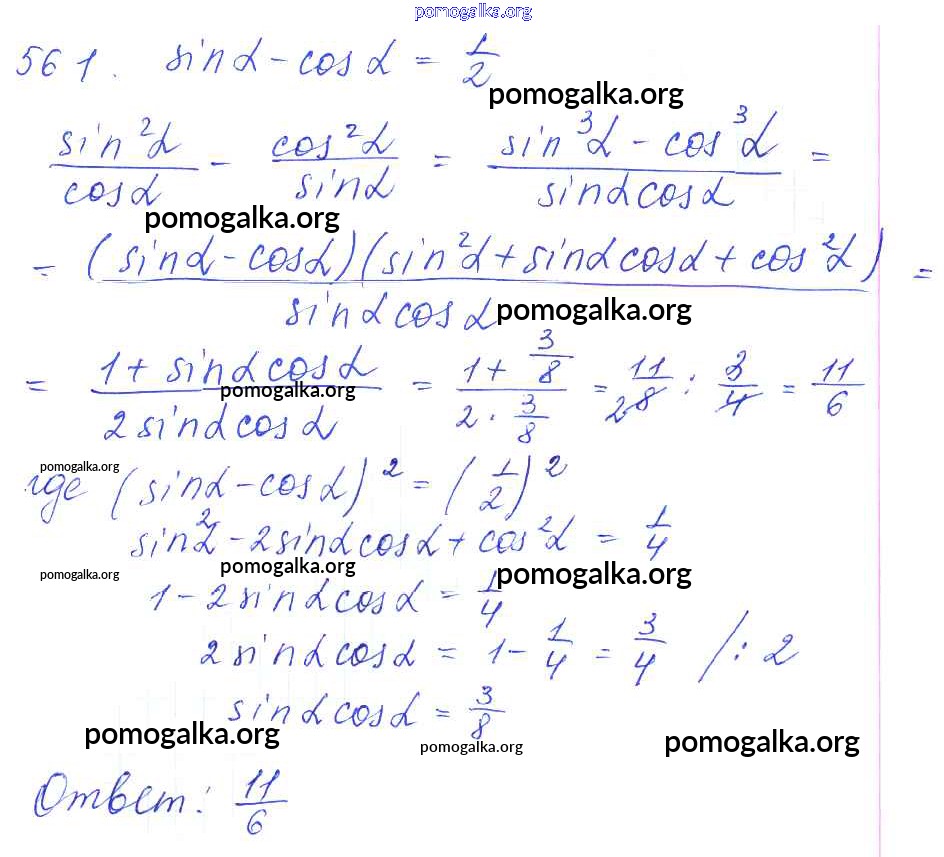 pomogalka.org
561. sinα - cosα = 1/2
pomogalka.org
sin²α/cosα - cos²α/sinα = (sin³α - cos³α)/(sinα cosα) =
pomogalka.org
= (sinα - cosα)(sin²α + sinα cosα + cos²α)/(sinα cosα) =
pomogalka.org
= (1 + sinα cosα)/(2 sinα cosα) = (1 + 3/8)/(2 · 3/8) = 11/8 2 : 3/4 = 11/6
pomogalka.org
pomogalka.org
где (sinα - cosα)² = (1/2)²
sin²α - 2sinα cosα + cos²α = 1/4
pomogalka.org pomogalka.org pomogalka.org
1 - 2sinα cosα = 1/4
2sinα cosα = 1 - 1/4 = 3/4 /: 2
sinα cosα = 3/8
pomogalka.org pomogalka.org pomogalka.org
Ответ: 11/6